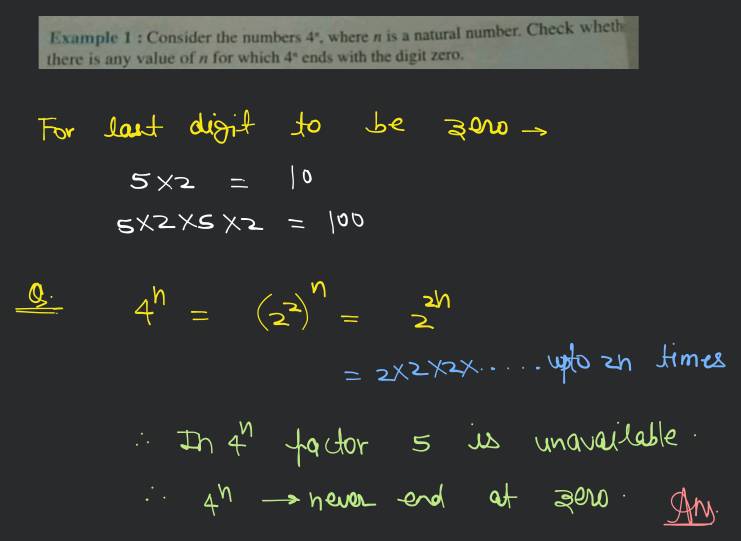 Example 1 : Consider the numbers 4ⁿ, where n is a natural number. Check wheth
there is any value of n for which 4ⁿ ends with the digit zero.
For last digit to be zero →
5×2 = 10
5×2×5×2 = 100
Q. 4ⁿ = (2²)ⁿ = 2²ⁿ
= 2×2×2×...... upto 2n times
∴ In 4ⁿ factor 5 is unavailable.
∴ 4ⁿ → never end at zero. Ans.